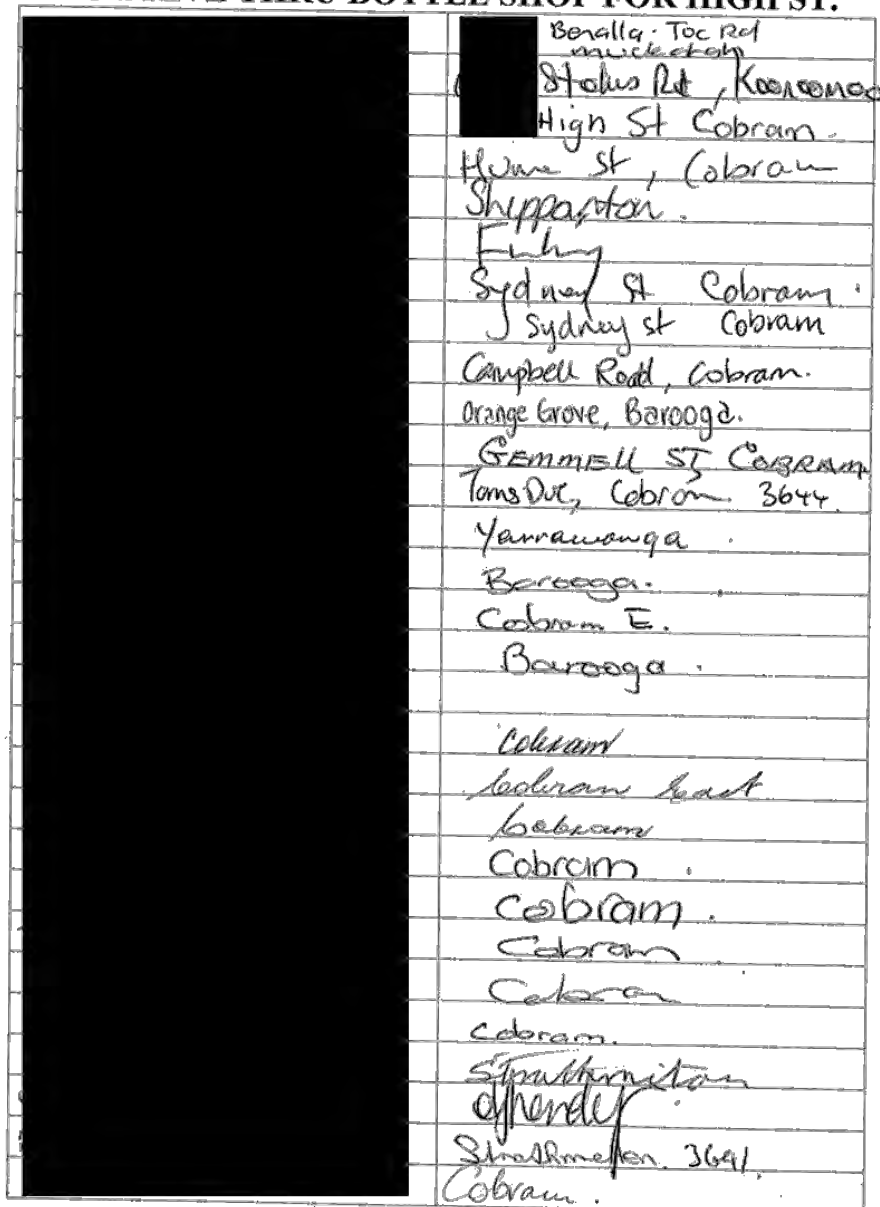 THRU BOTTLE SHOP FOR HIGH ST.
Benalla. Toc Rd
Rd, Koonoomoo
High St Cobram.
Hume St, Cobram
Shepparton.
Finley
Sydney St Cobram.
Sydney st Cobram
Campbell Road, Cobram.
Orange Grove, Barooga.
GEMMELL ST COBRAM
Toms Dve, Cobram 3644
Yarrawonga.
Barooga.
Cobram E.
Barooga.
Cobram
Cobram East
Cobram
Cobram.
Cobram.
Cobram
Cobram
Cobram.
Strathmerton
Strathmerton. 3641.
Cobram.